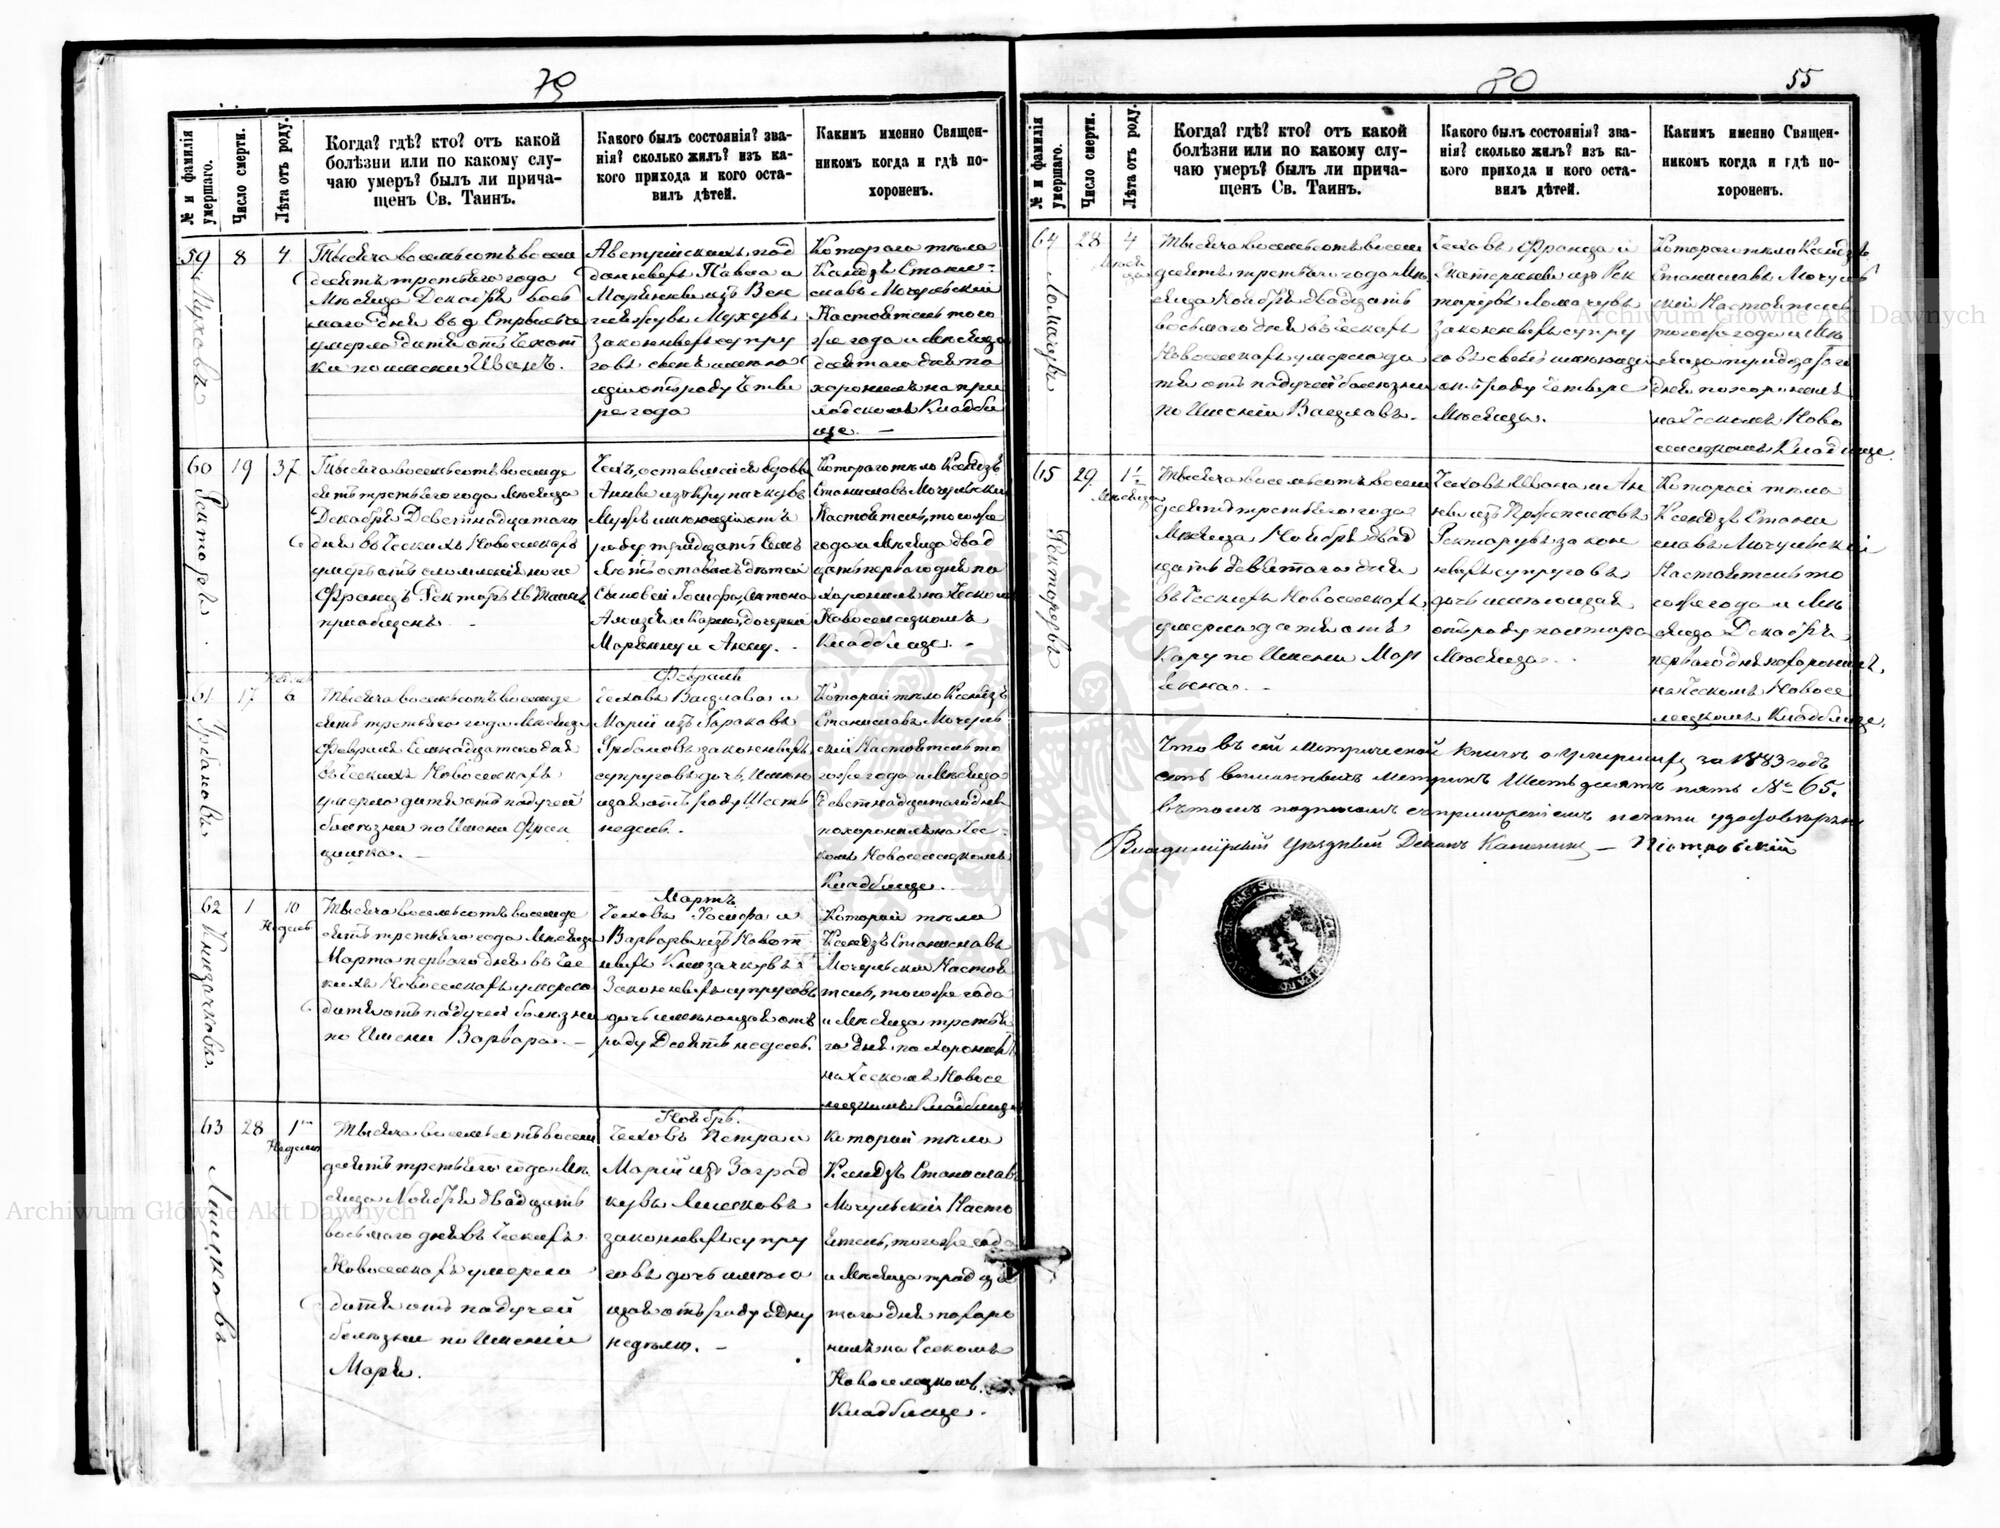 79
№ и фамилія умершаго.
Число смерти.
Лѣта отъ роду.
Когда? гдѣ? кто? отъ какой
болѣзни или по какому слу-
чаю умеръ? былъ ли прича-
щенъ Св. Таинъ.
Какого былъ состоянія? зва-
нія? сколько жилъ? изъ ка-
кого прихода и кого оста-
вилъ дѣтей.
Какимъ именно Священ-
никомъ когда и гдѣ по-
хороненъ.
59
Муховъ
8
4
Тысяча восемьсотъ восем
десятъ третьяго года
Мѣсяца Декабря вось
маго дня въ д.
умерло дитя отъ
ки по имени Иванъ.
Австрійскихъ под
данныхъ Павла и
Марьянны изъ
Мухувъ
законныхъ супру
говъ сынъ имѣю
щій отъ роду четы
ре года
Котораго тѣло
Ксендзъ Станис-
славъ Мочульскій
Настоятель того
же года и мѣсяца
девятаго дня по
хоронилъ на при
ходскомъ Кладби
ще. —
60
Ректоръ
19
37
Тысяча восемьсотъ восемьде
сятъ третьяго года Мѣсяца
Декабря Девятнадцатаго
дня въ Ческихъ Новоселкахъ
умеръ отъ сломленія ноги
Францъ Ректоръ Св Таинъ
пріобщенъ. -
Чехъ, оставившій вдову
Анну изъ Крупичкувъ
Мужъ имѣющій отъ
роду тридцать семь
лѣтъ оставилъ дѣтей
сыновей Іосифа, Антона
Алоизія и Карла, дочерей
Марьянну и Анну. -
Котораго тѣло Ксендзъ
Станиславъ Мочульскій
Настоятель, того же
года и Мѣсяца двад
цать перваго дня по
хоронилъ на Ческомъ
Новоселецкомъ
Кладбище. -
61
Урбановъ
17
6
Февраль
Тысяча восемьсотъ восемьде
сятъ третьяго года Мѣсяца
Февраля Семнадцатаго дня
въ Ческихъ Новоселкахъ
умерло дитя отъ падучей
болѣзни по Имени Фран
цишка. —
Чеховъ Вацлава и
Маріи изъ
Урбановъ законныхъ
супруговъ дочь, имѣю
щая отъ роду шесть
недѣль.
Которой тѣло Ксендзъ
Станиславъ Мочуль
скій Настоятель то
го же года и Мѣсяца
Девятнадцатаго дня
похоронилъ на Чес-
комъ Новоселецкомъ
Кладбище.
62
1
10
Недѣль
Мартъ
Тысяча восемьсотъ восемьде
сятъ третьяго года Мѣсяца
Марта перваго дня въ Чес
кихъ Новоселкахъ умерло
дитя отъ падучей болѣзни
по Имени Варвара. —
Чеховъ Іосифа и
Варвары изъ
законныхъ супруговъ
дочь имѣющая отъ
роду Десять недѣль.
Которой тѣло
Ксендзъ Станиславъ
Мочульскій Настоя
тель, того же года
и Мѣсяца третья
го дня похоронилъ
на Ческомъ Новосе
лецкомъ Кладбище
63
28
1
Недѣля
Ноябрь.
Тысяча восемьсотъ восем
десятъ третьяго года Мѣ
сяца Ноября двадцать
восьмаго дня въ Ческихъ
Новоселкахъ умерло
дитя отъ падучей
болѣзни по Имени
Марія.
Чеховъ Петра и
Маріи изъ Заград
кувъ
законныхъ супру
говъ дочь имѣю
щая отъ роду одну
недѣлю. —
Которой тѣло
Ксендзъ Станиславъ
Мочульскій Насто
ятель, того же года
и Мѣсяца тридца
таго дня похоро
нилъ на Ческомъ
Новоселецкомъ
Кладбище.
80
55
№ и фамилія умершаго.
Число смерти.
Лѣта отъ роду.
Когда? гдѣ? кто? отъ какой
болѣзни или по какому слу-
чаю умеръ? былъ ли прича-
щенъ Св. Таинъ.
Какого былъ состоянія? зва-
нія? сколько жилъ? изъ ка-
кого прихода и кого оста-
вилъ дѣтей.
Какимъ именно Священ-
никомъ когда и гдѣ по-
хороненъ.
64
28
4
Тысяча восемьсотъ восем
десятъ третьяго года Мѣ
сяца Ноября двадцать
восьмаго дня въ Ческихъ
Новоселкахъ умерло ди
тя отъ падучей болѣзни
по Имени Вацлавъ.
Чеховъ Франца и
Екатерины изъ Рек
торувъ
законныхъ супру
говъ сынъ имѣющій
отъ роду четыре
Мѣсяца.
Котораго тѣло Ксендзъ
Станиславъ Мочуль
скій Настоятель
того же года и Мѣ
сяца тридцатаго
дня похоронилъ
на Ческомъ Ново
селецкомъ Кладбище.
65
Ректоровъ
29
1½
Мѣсяца
Тысяча восемьсотъ восем
десятъ третьяго года
Мѣсяца Ноября двад
цать девятаго дня
въ Ческихъ Новоселкахъ
умерло дитя отъ
Кору по Имени Мар
ьянна. —
Чеховъ Ивана и Ан
ны изъ
Ректорувъ закон
ныхъ супруговъ
дочь имѣющая
отъ роду полтора
Мѣсяца.
Которой тѣло
Ксендзъ Стани
славъ Мочульскій
Настоятель то
го же года и Мѣ
сяца Декабря
перваго дня похоронилъ
на Ческомъ Новосе
лецкомъ Кладбище.
Что въ сей метрической книгѣ о умершихъ за 1883 годъ
есть метрикъ Шестьдесятъ пять № 65.
въ томъ подписомъ съ приложеніемъ печати удостовѣряю
Владимірскій Уѣздный Деканъ Каноникъ — Піотровскій
Archiwum Główne Akt Dawnych
Archiwum Główne Akt Dawnych